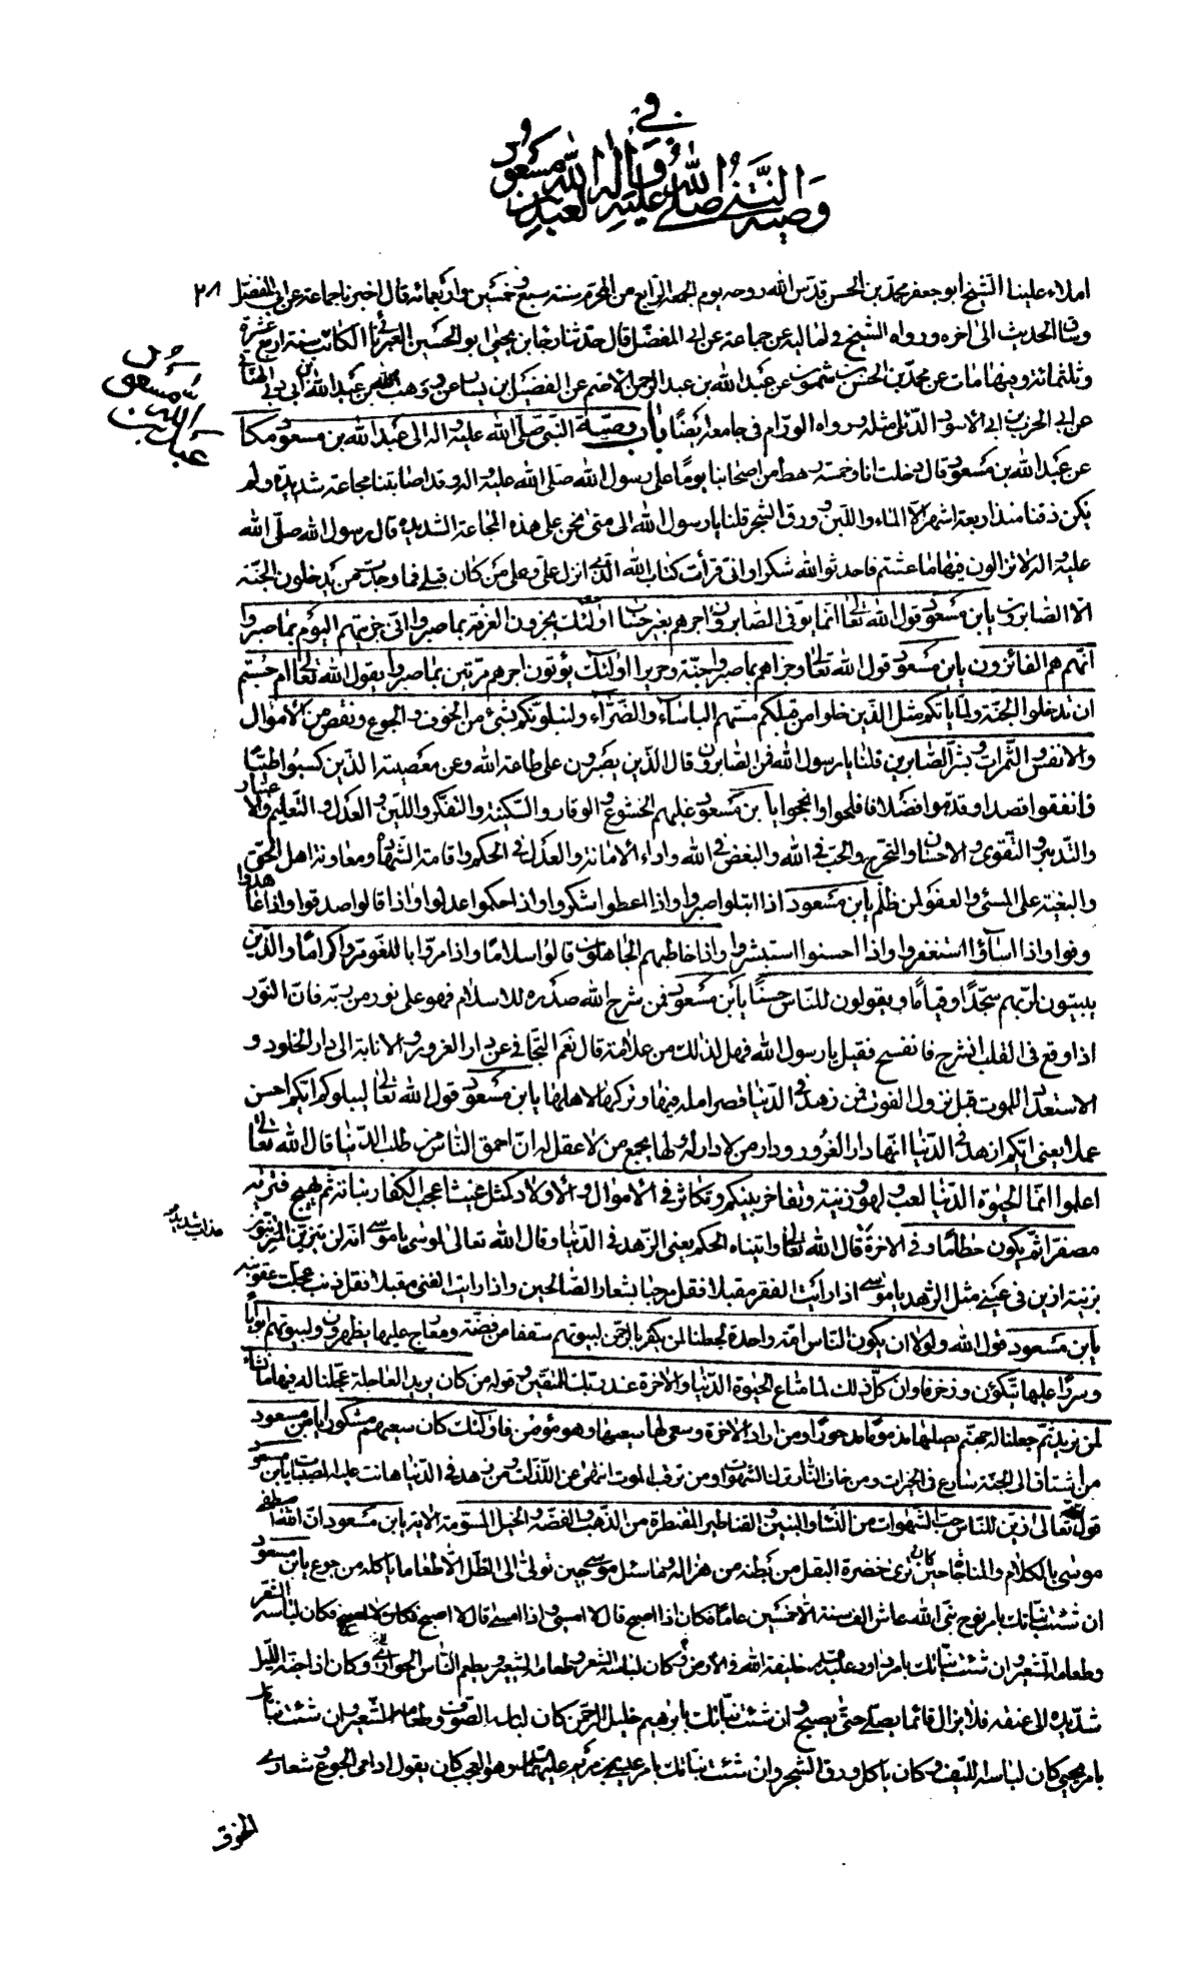 في
وصية النبي صلى الله عليه وآله لعبد الله بن مسعود
املاء علينا الشيخ ابو جعفر محمد بن الحسن قدس الله روحه يوم الجمعة الرابع من المحرم سنة سبع وخمسين واربعمائة قال اخبرنا جماعة عن ابي المفضل ٢٨
وساق الحديث الى اخره ورواه الشيخ في اماليه عن جماعة عن ابي المفضل قال حدثنا رجا بن يحيى ابو الحسين العبرتائي الكاتب سنة اربع عشرة
وثلثمائة وفيها مات عن محمد بن الحسن بن شمون عن عبد الله بن عبد الرحمن الاصم عن الفضيل بن يسار عن وهب بن عبد الله بن ابي دبي الهنائي
عن ابي الحرب بن ابي الاسود الدئلي مثله ورواه الورام في جامعه ايضا باب وصية النبي صلى الله عليه واله الى عبد الله بن مسعود مكا
عبد الله بن مسعود
عن عبد الله بن مسعود قال دخلت انا وخمسة رهط من اصحابنا يوما على رسول الله صلى الله عليه واله وقد اصابتنا مجاعة شديدة ولم
يكن ذقنا منذ اربعة اشهر الا الماء واللبن وورق الشجر قلنا يا رسول الله الى متى نحن على هذه المجاعة الشديدة قال رسول الله صلى الله
عليه واله لا تزالون فيها ما عشتم فاحدثوا لله شكرا واني قرأت كتاب الله الذي انزل علي وعلى من كان قبلي فما وجدت من يدخلون الجنة
الا الصابرون يابن مسعود قول الله تعالى انما يوفى الصابرون اجرهم بغير حساب اولئك يجزون الغرفة بما صبروا اني جزيتهم اليوم بما صبروا
انهم هم الفائزون يابن مسعود قول الله تعالى وجزاهم بما صبروا جنة وحريرا اولئك يؤتون اجرهم مرتين بما صبروا يقول الله تعالى ام حسبتم
ان تدخلوا الجنة ولما ياتكم مثل الذين خلوا من قبلكم مستهم الباساء والضراء ولنبلونكم بشئ من الخوف والجوع ونقص من الاموال
والانفس والثمرات وبشر الصابرين قلنا يا رسول الله فمن الصابرون قال الذين يصبرون على طاعة الله وعن معصيته الذين كسبوا طيبا
وانفقوا قصدا وقدموا فضلا فافلحوا وانجحوا يابن مسعود عليهم الخشوع والوقار والسكينة والتفكر واللين والعدل والتعليم والاعتبار
والتدبير والتقوى والاحسان والتحرج والحب في الله والبغض في الله واداء الامانة والعدل في الحكم واقامة الشهادة ومعاونة اهل الحق
والبغية على المسئ والعفو لمن ظلم يابن مسعود اذا ابتلوا صبروا واذا اعطوا شكروا واذا حكموا عدلوا واذا قالوا صدقوا واذا عاهدوا
وفوا واذا اساؤا استغفروا واذا احسنوا استبشروا واذا خاطبهم الجاهلون قالوا سلاما واذا مروا باللغو مروا كراما والذين
يبيتون لربهم سجدا وقياما ويقولون للناس حسنا يابن مسعود فمن شرح الله صدره للاسلام فهو على نور من ربه فان النور
اذا وقع في القلب انشرح فانفسح فقيل يا رسول الله فهل لذلك من علامة قال نعم التجافي عن دار الغرور والانابة الى دار الخلود و
الاستعداد للموت قبل نزول الفوت فمن زهد في الدنيا قصر امله فيها وتركها لاهلها يابن مسعود قول الله تعالى ليبلوكم ايكم احسن
عملا يعني ايكم ازهد في الدنيا انها دار الغرور ودار من لا دار له ولها يجمع من لا عقل له ان احمق الناس من طلب الدنيا قال الله تعالى
اعلموا انما الحيوة الدنيا لعب ولهو وزينة وتفاخر بينكم وتكاثر في الاموال والاولاد كمثل غيث اعجب الكفار نباته ثم يهيج فتريه
مصفرا ثم يكون حطاما وفي الاخرة قال الله تعالى واتيناه الحكم يعني الزهد في الدنيا وقال الله تعالى لموسى يا موسى انه لن يتزين المتزينون
عذاب شديد
بزينة ازين في عيني مثل الزهد يا موسى اذا رأيت الفقر مقبلا فقل مرحبا بشعار الصالحين واذا رايت الغنى مقبلا فقل ذنب عجلت عقوبته
يابن مسعود قول الله ولولا ان يكون الناس امة واحدة لجعلنا لمن يكفر بالرحمن لبيوتهم سقفا من فضة ومعارج عليها يظهرون ولبيوتهم ابوابا
وسررا عليها يتكؤن وزخرفا وان كل ذلك لما متاع الحيوة الدنيا والاخرة عند ربك للمتقين وقوله من كان يريد العاجلة عجلنا له فيها ما نشاء
لمن نريد ثم جعلنا له جهنم يصلها مذموما مدحورا ومن اراد الاخرة وسعى لها سعيها وهو مؤمن فاولئك كان سعيهم مشكورا يابن مسعود
من اشتاق الى الجنة سارع في الخيرات ومن خاف النار ترك الشهوات ومن ترقب الموت انتهى عن اللذات ومن زهد في الدنيا هانت عليه المصيبات يابن مسعود
قول الله تعالى زين للناس حب الشهوات من النساء والبنين والقناطير المقنطرة من الذهب والفضة والخيل المسومة الاية يابن مسعود ان الله اصطفى
موسى بالكلام والمناجاة حين كان يرى خضرة البقل من بطنه من هزاله وما سئل موسى حين تولى الى الظل الا طعاما ياكله من جوع يابن مسعود
ان شئت نباتك بامر نوح نبي الله عاش الف سنة الا خمسين عاما فكان اذا اصبح قال لا امسي واذا امسى قال لا اصبح فكان لباسه الشعر
وطعامه الشعير وان شئت نباتك بامر داود عليه السلام خليفة الله في الارض وكان لباسه الشعر وطعامه الشعير ويطعم الناس الحوارى وكان اذا جنه الليل
شد يده الى عنقه فلا يزال قائما يصلي حتى يصبح وان شئت نباتك بابرهيم خليل الرحمن كان لباسه الصوف وطعامه الشعير وان شئت نباتك
بامر يحيى كان لباسه الليف وكان ياكل ورق الشجر وان شئت نباتك بامر عيسى بن مريم عليهما السلام وهو العجب كان يقول ادامي الجوع وشعاري
الخوف